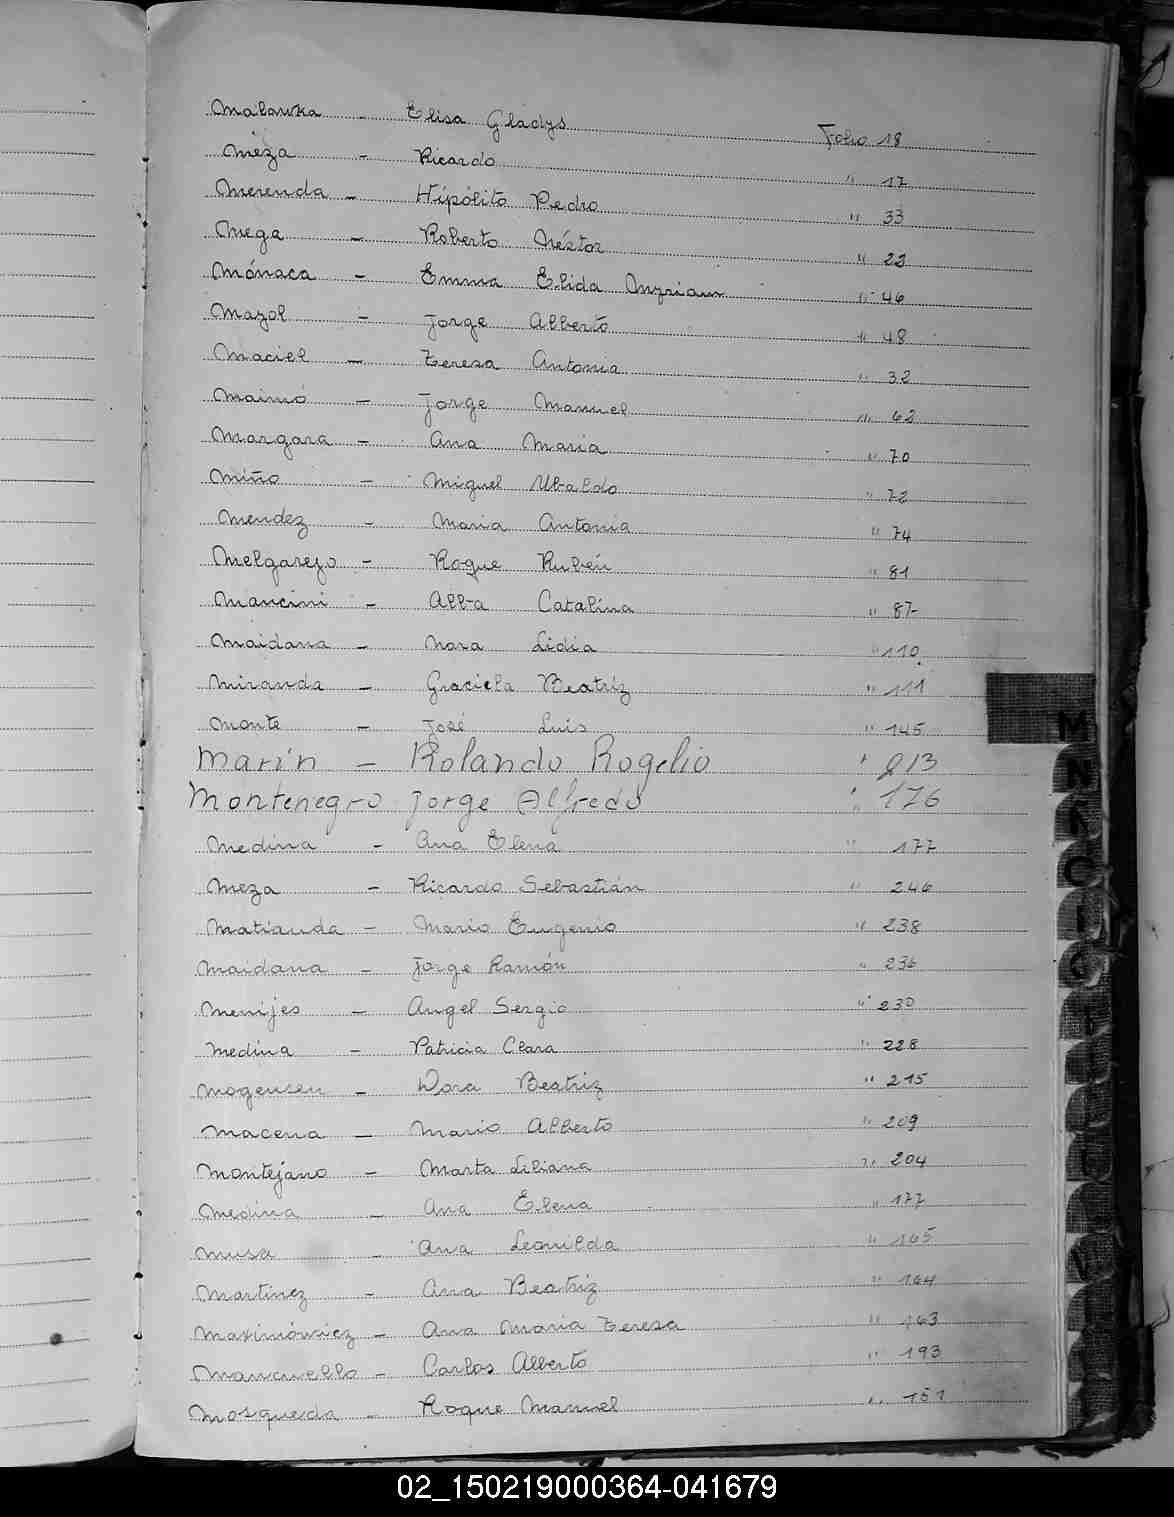 Malawka - Elisa Gladys Folio 18
Meza - Ricardo " 17
Merenda - Hipólito Pedro " 33
Mega - Roberto Néstor " 22
Mónaca - Emma Elida Myriam " 46
Mazol - Jorge Alberto " 48
Maciel - Teresa Antonia " 32
Maimó - Jorge Manuel " 62
Margara - Ana Maria " 70
Miño - Miguel Ubaldo " 72
Mendez - Maria Antonia " 74
Melgarejo - Roque Rubén " 81
Mancini - Alba Catalina " 87
Maidana - Nora Lidia " 110
Miranda - Graciela Beatriz " 111
Monte - José Luis " 145
Marín - Rolando Rogelio " 213
Montenegro Jorge Alfredo " 176
Medina - Ana Elena " 177
Meza - Ricardo Sebastián " 246
Matianda - Mario Eugenio " 238
Maidana - Jorge Ramón " 236
Menijes - Angel Sergio " 230
Medina - Patricia Clara " 228
Mogensen - Dora Beatriz " 215
Macena - Mario Alberto " 209
Montejano - Marta Liliana " 204
Medina - Ana Elena " 177
Musa - Ana Leonilda " 165
Martinez - Ana Beatriz " 164
Maximówicz - Ana Maria Teresa " 163
Mancuello - Carlos Alberto " 193
Mosqueda - Roque Manuel " 151
M
N
O
02_150219000364-041679